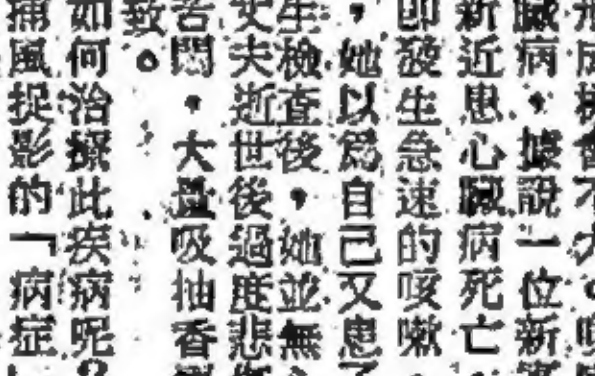 成
臟病，據說一位新
新近患心臟病死亡
即發生急速的咳嗽
，她以爲自己又患了
生檢查後，她並無心
丈夫逝世後過度悲傷
苦悶，大量吸抽香
致。
如何治療此疾病呢？
捕風捉影的「病症